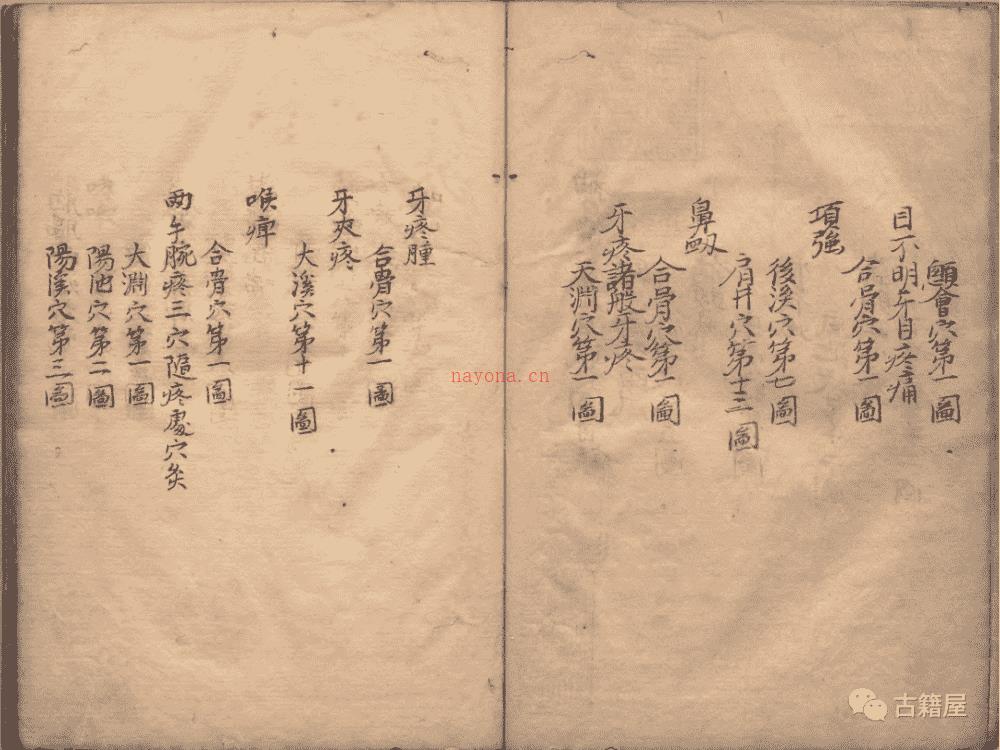 顖會穴第一圖
目不明并目疼痛
合骨穴第一圖
項強
後溪穴第七圖
肩井穴第十三圖
鼻衂
合骨穴第一圖
牙疼諸般牙疼
天淵穴第一圖
牙疼腫
合骨穴第一圖
牙疼
大溪穴第十一圖
喉痺
合骨穴第一圖
兩手腕疼三穴隨疼處穴灸
大淵穴第一圖
陽池穴第二圖
陽溪穴第三圖
nayona.cn
古籍屋